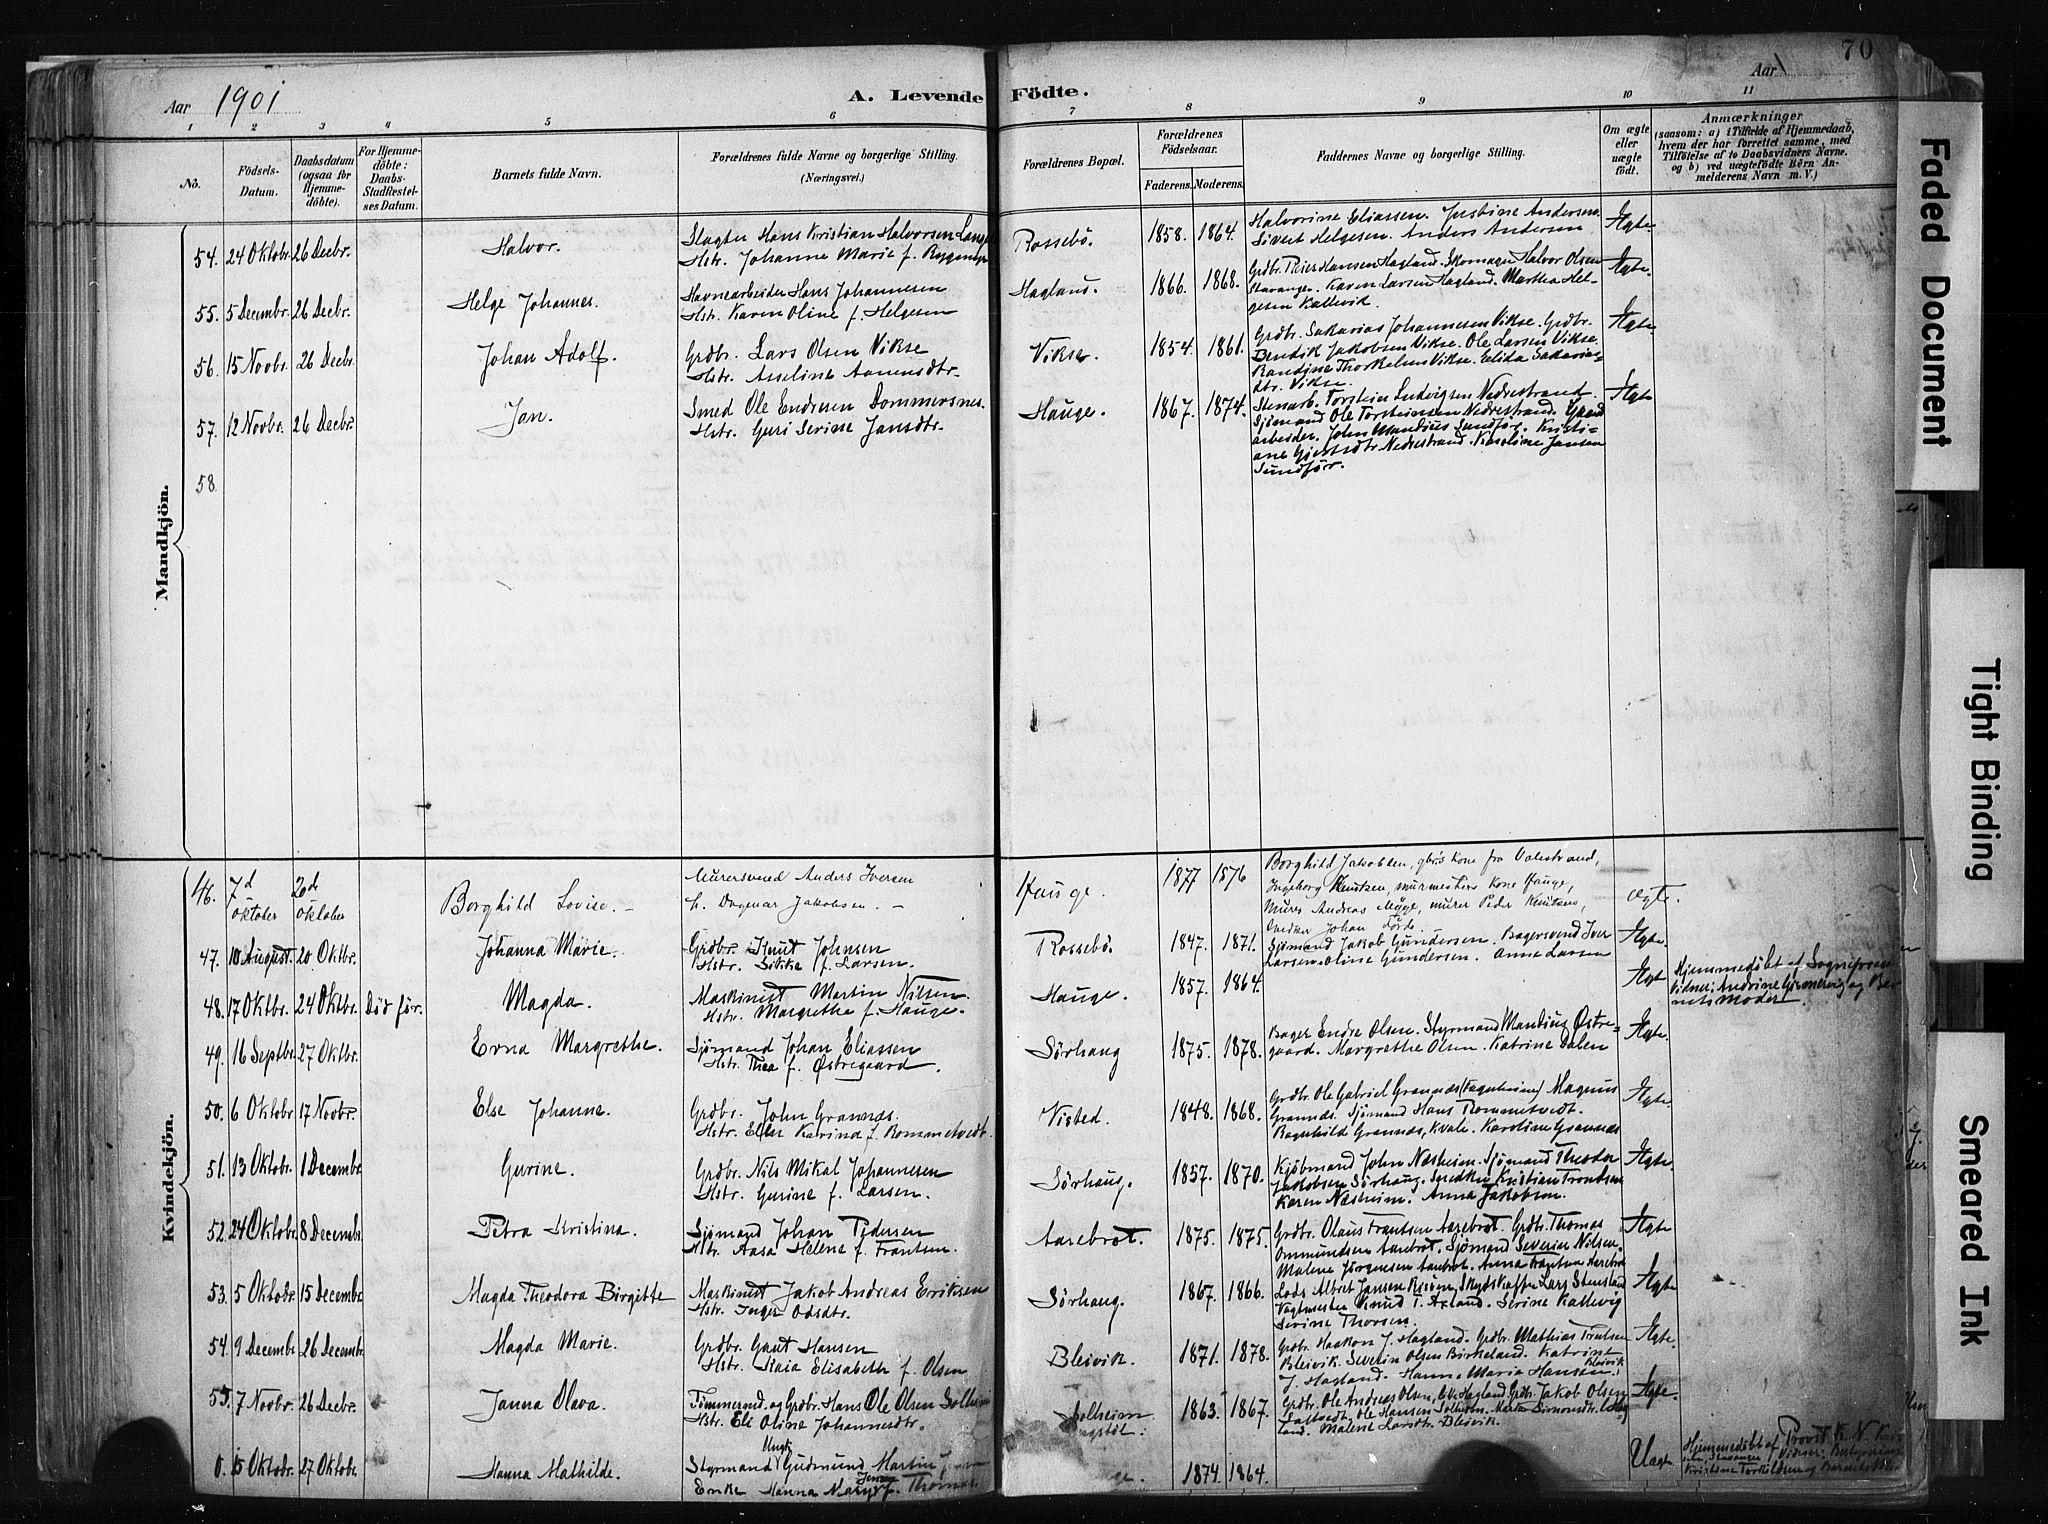 70
Aar 1901
A. Levende Födte.
Aar
1 2 3 4 5 6 7 8 9 10 11
No.
Födsels-
Datum.
Daabsdatum
(ogsaa for
Hjemme-
döbte).
For Hjemme-
döbte:
Daabs-
Stadfæstel-
ses Datum.
Barnets fulde Navn.
Forældrenes fulde Navne og borgerlige Stilling.
(Næringsvei.)
Forældrenes Bopæl.
Forældrenes
Födselsaar.
Faderens. Moderens.
Faddernes Navne og borgerlige Stilling.
Om ægte
eller
uægte
födt.
Anmærkninger
(saasom: a) i Tilfælde af Hjemmedaab,
hvem der har forrettet samme, med
Tilföielse af to Daabsvidners Navne.
og b) ved uægtefödte Börn An-
melderens Navn m. V.)
Mandkjön.
54. 24 Oktobr. 26 Decbr. Halvor.
Slagter Hans Kristian Halvorsen
Hstr. Johanne Marie f.
Rossebö. 1858. 1864.
Halvorine Eliassen. Justine Andersen.
Sivert Helgesen. Anders Andersen
Ægte
55. 5 Decembr. 26 Decbr. Helge Johannes.
Havnearbeider Hans Johannesen
Hstr. Karen Oline f. Helgesen
Hagland. 1866. 1868.
Grdbr. Hansen Hagland. Skomager Halvor Olsen
Stavanger. Karen Larsen Hagland. Martha Hel-
gesen Kallevik.
Ægte.
56. 15 Novbr. 26 Decbr. Johan Adolf.
Grdbr. Lars Olsen Vikse
Hstr. Asseline Aanensdtr.
Vikse. 1854. 1861.
Grdbr. Sakarias Johannesen Vikse. Grdbr.
Bendik Jakobsen Vikse. Ole Larsen Vikse.
Randine Thorkelsen Vikse. Elida Sakarias-
dtr. Vikse.
Ægte
57. 12 Novbr. 26 Decbr. Jan.
Smed Ole Endresen Dommersnes.
Hstr. Guri Serine Jansdtr.
Hauge. 1867. 1874.
Stenarb. Torstein Ludvigsen Nedrestrand.
Sjömand Ole Torsteinsen Nedrestrand. Gaard
arbeider. John Mandius Sundför. Kristi-
ane Gjertsdtr. Nedrestrand. Karoline Jansen
Sundför.
Ægte
58.
Kvindekjön.
46. 7d Oktober 20d Oktober Borghild Lovise.
Murersvend Anders Iversen
h. Dagmar Jakobsen.
Hauge. 1877 1876
Borghild Jakobsen, gbr's Kone fra Valestrand,
Ingeborg Knutsen, murmesters Kone Hauge,
Murer Andreas Mögge, murer Peder Knutsen,
Snedker Johan Förde.
ægte.
47. 10 August. 20 Oktbr. Johanna Marie.
Grdbr. Knut Johnsen
Hstr. Sikke f. Larsen.
Rossebö. 1847. 1871.
Sjömand Jakob Gundersen. Bagersvend Iver
Larsen. Oline Gundersen. Anne Larsen
Ægte.
48. 17 Oktbr. 24 Oktbr. Död för. Magda.
Maskinist Martin Nilsen.
Hstr. Margrethe f. Hauge.
Hauge. 1857. 1864.
Ægte
Hjemmedöbt af Sognepræsten
Vidner: Andrine og Bar-
nets Moder
49. 16 Septbr. 27 Oktbr. Erna Margrethe.
Sjömand Johan Eliassen
Hstr. Thea f. Østregaard.
Sörhaug 1875. 1878.
Bager Endre Olsen. Styrmand Mandius Østre-
gaard. Margrethe Olsen. Katrine Dalen
Ægte.
50. 6 Oktobr. 17 Novbr. Else Johanne.
Grdbr. John Grannæs.
Hstr. Else Katrina f. Rommetvedt.
Visted. 1848. 1868.
Grdbr. Ole Gabriel Grannæs (Fagerheim) Magnus
Grannæs. Sjömand Hans Rommetvedt.
Ragnhild Grannæs, Kvale. Karoline Grannæs
Ægte.
51. 13 Oktobr. 1 Decembr. Gurine.
Grdbr. Nils Mikal Johannesen
Hstr. Gurine f. Larsen.
Sörhaug. 1857. 1870.
Kjöbmand John Næsheim. Sjömand Theodor
Jakobsen Sörhaug. Snedker Kristian Trondsen
Karen Næsheim. Anna Jakobsen.
Ægte.
52. 24 Oktobr. 8 Decembr. Petra Kristina.
Sjömand Johan Pedersen
Hstr. Aasa Helene f. Frantsen.
Aarebrot. 1875. 1875.
Grdbr. Olaus Frantsen Aarebrot. Grdbr. Thomas
Ommundsen Aarebrot. Sjömand Severin Nilsen.
Malene Jörgensen Aarebrot. Anna Aarebrot
Ægte
53. 5 Oktobr. 15 Decembr. Magda Theodora Birgitte
Maskinist Jakob Andreas Eriksen
Hstr. Inger Odsdtr.
Sörhaug. 1867. 1866.
Lods Albret Jansen Skydskaffer Lars Stensland
Vagtmester Knud T. Axland. Serine Kallevig
Serine Thorsen.
Ægte
54. 9 Decembr. 26 Decembr. Magda Marie.
Grdbr. Gaut Hansen
Hstr. Kaia Elisabeth f. Olsen
Bleivik. 1871. 1878.
Grdbr. Haakon J. Hagland. Grdbr. Mathias Trulsen
Bleivik. Severin Olsen Birkeland. Katrine
J. Hagland. Hanna Maria Hansen Bleivik.
Ægte.
55. 7 Novbr. 26 Decbr. Janna Olava.
Tömmermd. og Grdbr. Hans Ole Olsen Solheim
Hstr. Eli Oline Johannesdtr.
Solheim 1863. 1867.
Grdbr. Ole Andreas Olsen, Hagland. Grdbr. Jakob Olsen
Ole Hansen Solheim. Marta Simonsdtr. Hag-
land. Malene Larsdtr. Bleivik.
Ægte
15 Oktobr. 27 Oktobr. Hanna Mathilde.
Ungk.
Styrmand Gudmund Martin
Enke Hanna Mary f. Thomas
1874. 1864.
Uægte
Hjemmedöbt af Provst K. N.
Faded Document
Tight Binding
Smeared Ink